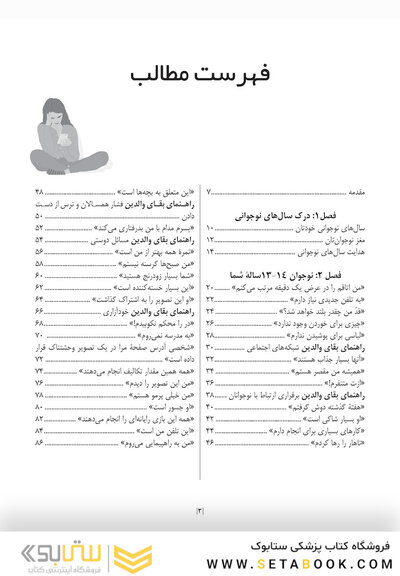 فهرست مطالب
مقدمه ........ ۷
فصل ۱: درک سال‌های نوجوانی
سال‌های نوجوانی خودتان ........ ۱۰
مغز نوجوان‌تان ........ ۱۲
هدایت سال‌های نوجوانی ........ ۱۴
فصل ۲: نوجوان ۱۴-۱۳سالهٔ شما
«من اتاقم را در عرض یک دقیقه مرتب می‌کنم» ........ ۲۰
«به تلفن جدیدی نیاز دارم» ........ ۲۲
«قدّ من چقدر بلند خواهد شد؟» ........ ۲۴
«چیزی برای خوردن وجود ندارد» ........ ۲۶
«لباسی برای پوشیدن ندارم» ........ ۲۸
راهنمای بقای والدین شبکه‌های اجتماعی ........ ۳۰
«آنها بسیار جذاب هستند» ........ ۳۲
«همیشه من مقصر هستم» ........ ۳۴
«ازت متنفرم!» ........ ۳۶
راهنمای بقای والدین برقراری ارتباط با نوجوانان ........ ۳۸
«هفتهٔ گذشته دوش گرفتم» ........ ۴۰
«او بسیار شاکی است» ........ ۴۲
«کارهای بسیاری برای انجام دارم» ........ ۴۴
«ناهار را رها کردم» ........ ۴۶
«این متعلق به بچه‌ها است» ........ ۴۸
راهنمای بقای والدین فشار همسالان و ترس از دست
دادن ........ ۵۰
«پسرم مدام با من بدرفتاری می‌کند» ........ ۵۲
راهنمای بقای والدین مسائل دوستی ........ ۵۴
«نمرهٔ همه بهتر از من است» ........ ۵۶
«من صبح‌ها گرسنه نیستم» ........ ۵۸
«شما بسیار زودرنج هستید» ........ ۶۰
«این بسیار خسته‌کننده است» ........ ۶۲
«او این تصویر را به اشتراک گذاشت» ........ ۶۴
راهنمای بقای والدین خودآزاری ........ ۶۶
«در را محکم نکوبید!» ........ ۶۸
«به مدرسه نمی‌روم» ........ ۷۰
«شخصی آدرس صفحهٔ مرا در یک تصویر وحشتناک قرار
داده است» ........ ۷۲
«همه همین مقدار تکالیف انجام می‌دهند» ........ ۷۴
«من این تصویر را دیدم» ........ ۷۶
«من خیلی پرمو هستم» ........ ۷۸
«او جسور است» ........ ۸۰
«همه این بازی رایانه‌ای را انجام می‌دهند» ........ ۸۲
«این تلفن من است» ........ ۸۴
«من به راهپیمایی می‌روم» ........ ۸۶
|۳|
فروشگاه کتاب پزشکی ستابوک
WWW.SETABOOK.COM
ستابوک
فروشگاه اینترنتی کتاب